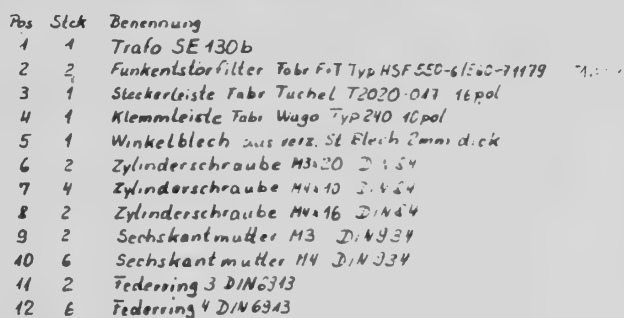 Pos Stck Benennung
1 1 Trafo SE 130b
2 2 Funkentstörfilter Fabr F+T Typ HSF 550-6/560-71179
3 1 Steckerleiste Fabr Tuchel T2020-017 16pol
4 1 Klemmleiste Fabr Wago Typ 240 10pol
5 1 Winkelblech aus verz. St Blech 2mm dick
6 2 Zylinderschraube M3x20
7 4 Zylinderschraube M4x10 DIN 84
8 2 Zylinderschraube M4x16 DIN 84
9 2 Sechskantmutter M3 DIN 934
10 6 Sechskantmutter M4 DIN 934
11 2 Federring 3 DIN 6913
12 6 Federring 4 DIN 6913